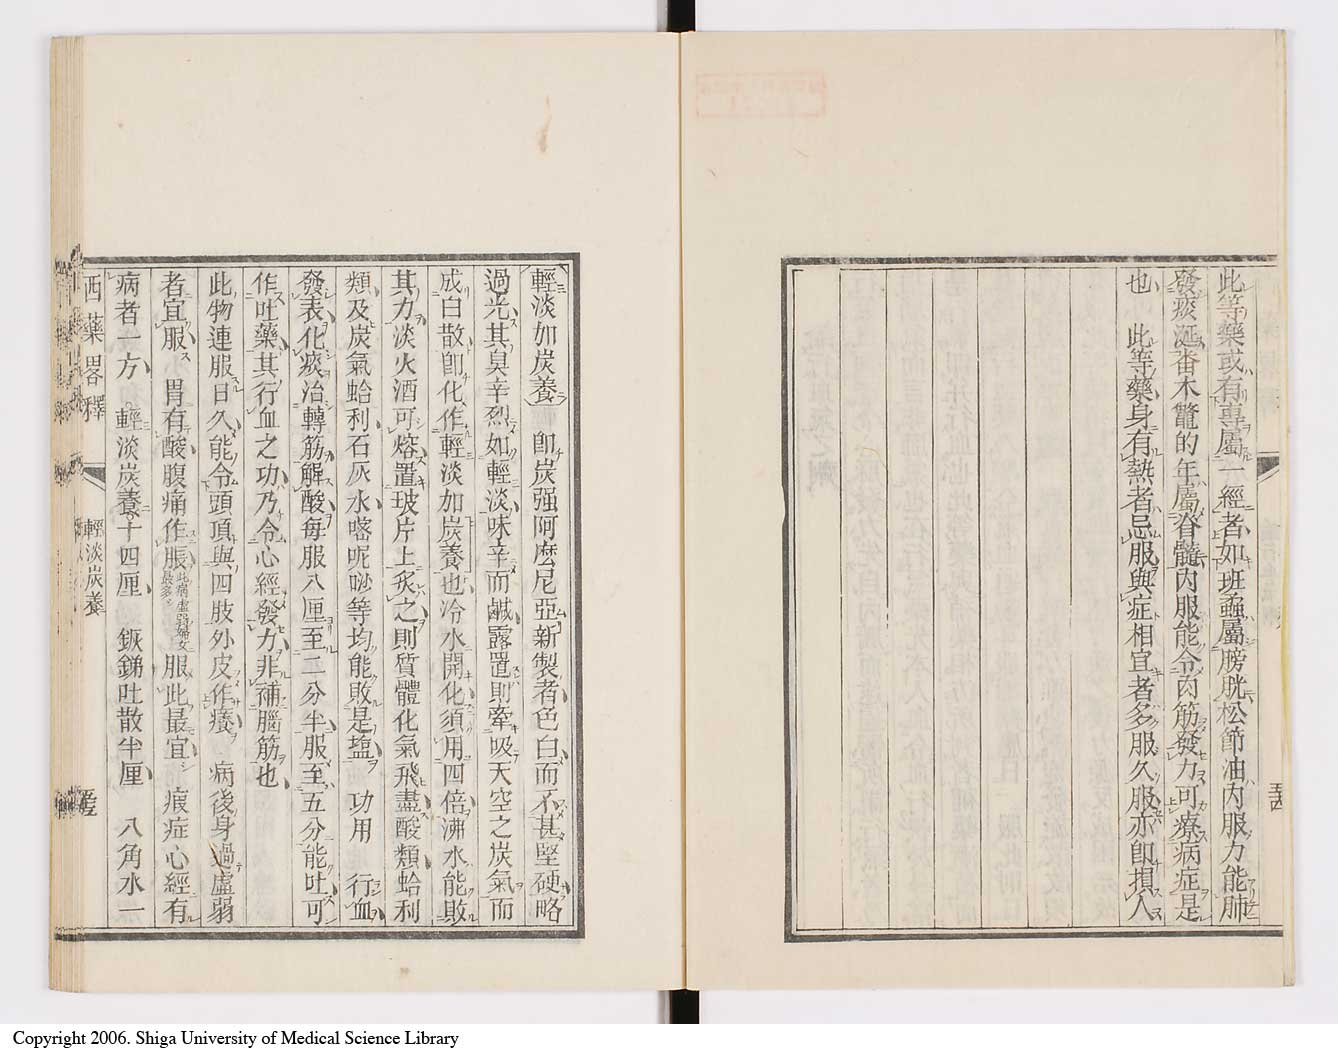 此等藥或有專屬一經者如班蝱屬膀胱松節油內服力能肺
發痰涎番木鼈的年屬脊髓內服能令肉筋發力可療病症是
也 此等藥身有熱者忌服與症相宜者多服久服亦即損人
五十四
輕淡加炭養 即炭强阿麽尼亞新製者色白而不甚堅硬略
過光其臭辛烈如輕淡味辛而鹹露置則牽吸天空之炭氣而
成白散卽化作輕淡加炭養也冷水開化須用四倍沸水能敗
其力淡火酒可熔置玻片上炙之則質體化氣飛盡酸類蛤利
類及炭氣蛤利石灰水喀呢唦等均能敗是塩 功用 行血
發表化痰治轉筋解酸每服八厘至二分半服至五分能吐可
作吐藥其行血之功乃令心經發力非補腦筋也
此物連服日久能令頭頂與四肢外皮作癢 病後身過虛弱
者宜服 胃有酸腹痛作脹此病虛弱婦女最多服此最宜 痕症心經有
病者一方 輕淡炭養十四厘 鋠銻吐散半厘 八角水一
西藥畧釋
輕淡炭養